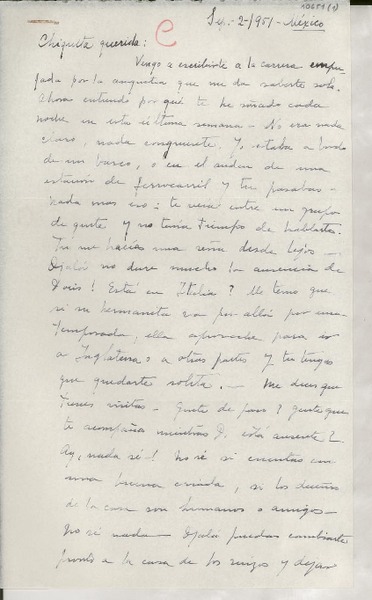 10651 (1)
Sep.- 2-1951-México
C
Chiquita querida:
Vengo a escribirte a la carrera empu-
jada por la angustia que me da saberte sola.
Ahora entiendo por qué te he soñado cada
noche en esta última semana - No era nada
claro, nada congruente. Yo estaba a bordo
de un barco, o en el anden de una
estación de ferrocarril y tu pasabas -
Nada mas eso: te veía entre un grupo
de gente y no tenía tiempo de hablarte.
Tú me hacías una seña desde lejos -
Ojalá no dure mucho la ausencia de
Doris! Está en Italia? Me temo que
si su hermanita va por allá por una
temporada, ella aproveche para ir
a Inglaterra o a otras partes y tu tengas
que quedarte solita. - Me dices que
tienes visitas - Gente de paso? gente que
te acompaña mientras D. está ausente?
Ay, nada sé! No sé si cuentas con
una buena criada, si los dueños
de la casa son humanos o amigos -
No sé nada - Ojalá puedas cambiarte
pronto a la casa de los suizos y dejar